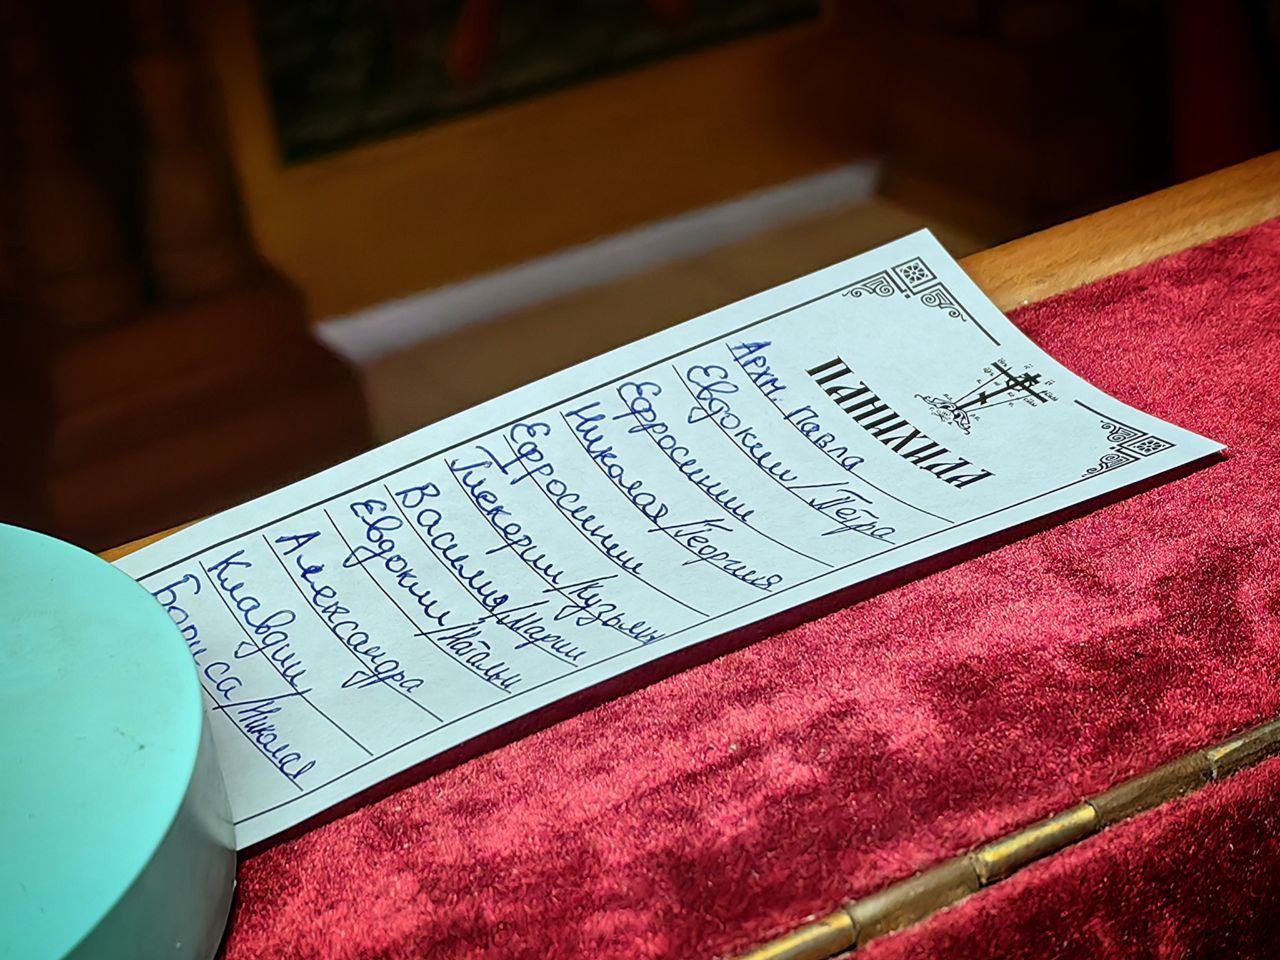 ПАНИХИДА
Архм. Павла
Евдокии / Петра
Ефросинии
Николая / Георгия
Ефросинии
Гликерии / Кузьмы
Василия / Марии
Евдокии / Натальи
Александра
Клавдии
Бориса / Николая